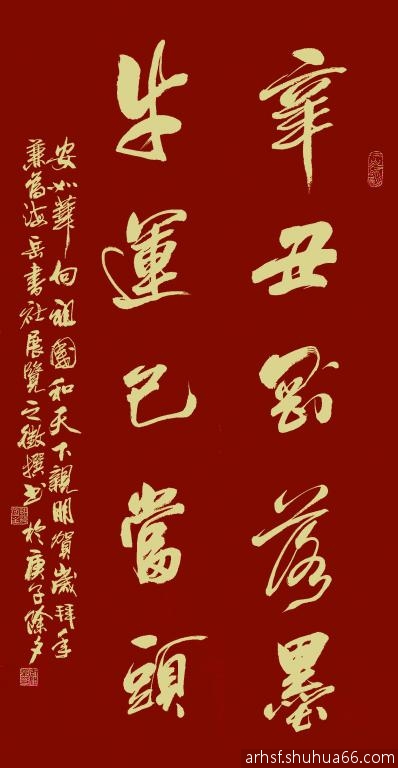 辛丑剛落墨
牛運已當頭
安如華向祖國和天下親朋賀歲拜年
兼為海岳書社展覽之徵撰書於庚子除夕
arhsf.shuhua66.com